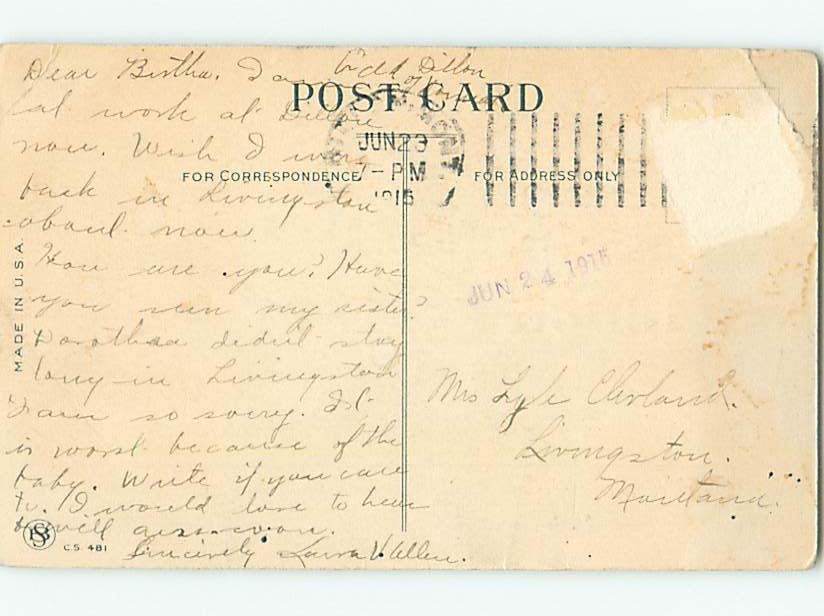 Dear Bertha. I am
Add Dillon
POST CARD
at work at Dillon
now. Wish I were
back in Livingston
about now.
How are you? Have
you seen my sister?
Dorothea didn't stay
long in Livingston
I am so sorry. It
is worst because of the
baby. Write if you care
to. I would love to hear
will ans. soon.
Sincerely Laura V. Allen.
FOR CORRESPONDENCE
FOR ADDRESS ONLY
JUN 23
7-PM
1915
MONT.
JUN 24 1915
Mrs Lyle Cleveland.
Livingston.
Montana.
MADE IN U.S.A.
SB
C.S. 481